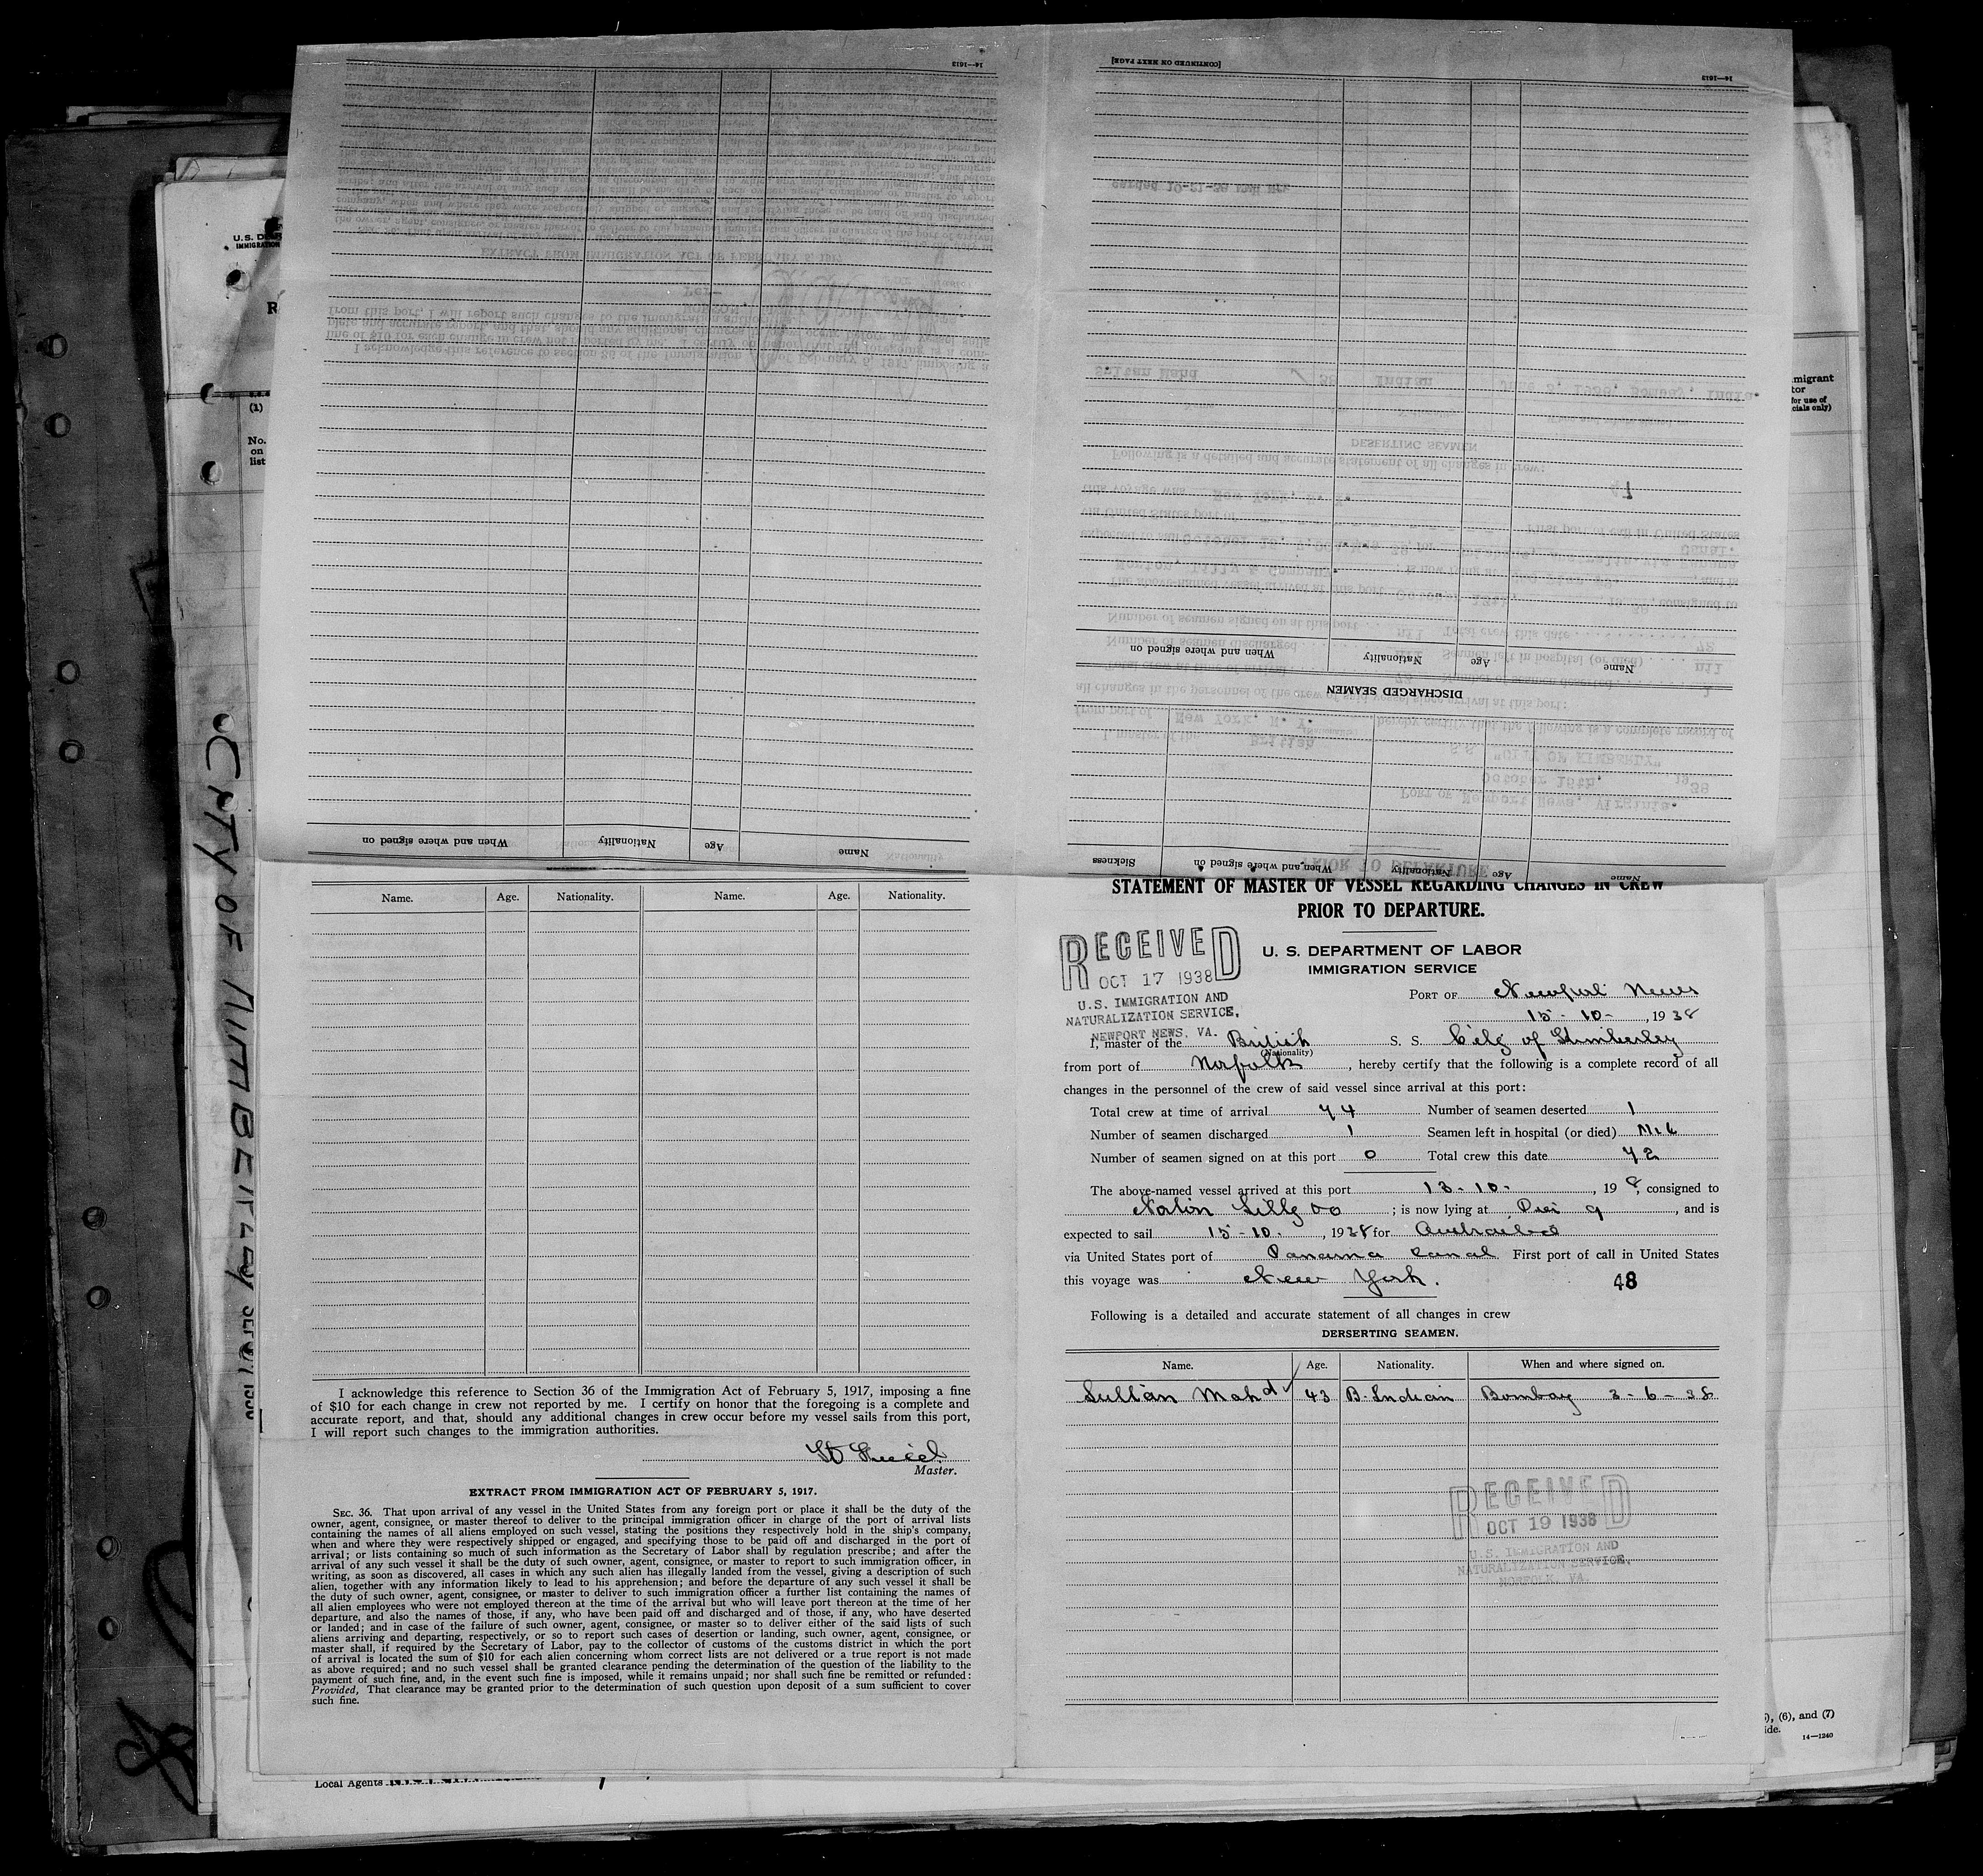 CITY OF KIMBERLEY
U.S. D
IMMIGRATION
R
(1)
No.
on
list
migrant
tor
for use of
cials only)
14—1613
[CONTINUED ON NEXT PAGE]
14—1613
When and where signed on
Nationality
Age
Name
DISCHARGED SEAMEN
Name
Age
Nationality
When and where signed on
Sickness
Name
Age
Nationality
When and where signed on
Name. Age. Nationality. Name. Age. Nationality.
I acknowledge this reference to Section 36 of the Immigration Act of February 5, 1917, imposing a fine
of $10 for each change in crew not reported by me. I certify on honor that the foregoing is a complete and
accurate report, and that, should any additional changes in crew occur before my vessel sails from this port,
I will report such changes to the immigration authorities.
Master.
EXTRACT FROM IMMIGRATION ACT OF FEBRUARY 5, 1917.
SEC. 36. That upon arrival of any vessel in the United States from any foreign port or place it shall be the duty of the
owner, agent, consignee, or master thereof to deliver to the principal immigration officer in charge of the port of arrival lists
containing the names of all aliens employed on such vessel, stating the positions they respectively hold in the ship's company,
when and where they were respectively shipped or engaged, and specifying those to be paid off and discharged in the port of
arrival; or lists containing so much of such information as the Secretary of Labor shall by regulation prescribe; and after the
arrival of any such vessel it shall be the duty of such owner, agent, consignee, or master to report to such immigration officer, in
writing, as soon as discovered, all cases in which any such alien has illegally landed from the vessel, giving a description of such
alien, together with any information likely to lead to his apprehension; and before the departure of any such vessel it shall be
the duty of such owner, agent, consignee, or master to deliver to such immigration officer a further list containing the names of
all alien employees who were not employed thereon at the time of the arrival but who will leave port thereon at the time of her
departure, and also the names of those, if any, who have been paid off and discharged and of those, if any, who have deserted
or landed; and in case of the failure of such owner, agent, consignee, or master so to deliver either of the said lists of such
aliens arriving and departing, respectively, or so to report such cases of desertion or landing, such owner, agent, consignee, or
master shall, if required by the Secretary of Labor, pay to the collector of customs of the customs district in which the port
of arrival is located the sum of $10 for each alien concerning whom correct lists are not delivered or a true report is not made
as above required; and no such vessel shall be granted clearance pending the determination of the question of the liability to the
payment of such fine, and, in the event such fine is imposed, while it remains unpaid; nor shall such fine be remitted or refunded:
Provided, That clearance may be granted prior to the determination of such question upon deposit of a sum sufficient to cover
such fine.
Local Agents
STATEMENT OF MASTER OF VESSEL REGARDING CHANGES IN CREW
PRIOR TO DEPARTURE.
U. S. DEPARTMENT OF LABOR
IMMIGRATION SERVICE
RECEIVED
OCT 17 1938
U.S. IMMIGRATION AND
NATURALIZATION SERVICE,
NEWPORT NEWS, VA.
PORT OF Newport News
15-10-, 1938
I, master of the British S. S. City of Kimberley
(Nationality)
from port of Norfolk, hereby certify that the following is a complete record of all
changes in the personnel of the crew of said vessel since arrival at this port:
Total crew at time of arrival 74 Number of seamen deserted 1
Number of seamen discharged 1 Seamen left in hospital (or died) Nil
Number of seamen signed on at this port 0 Total crew this date 72
The above-named vessel arrived at this port 13-10-, 19 8, consigned to
Norton Lilly Co; is now lying at Pier 9, and is
expected to sail 15-10., 1938 for Australia
via United States port of Panama Canal First port of call in United States
this voyage was New York. 48
Following is a detailed and accurate statement of all changes in crew
DERSERTING SEAMEN.
Name. Age. Nationality. When and where signed on.
Sultan Mahd 43 B. Indian Bombay 3-6-38
RECEIVED
OCT 19 1938
U.S. IMMIGRATION AND
NATURALIZATION SERVICE,
NORFOLK, VA.
), (6), and (7)
ide.
14—1240